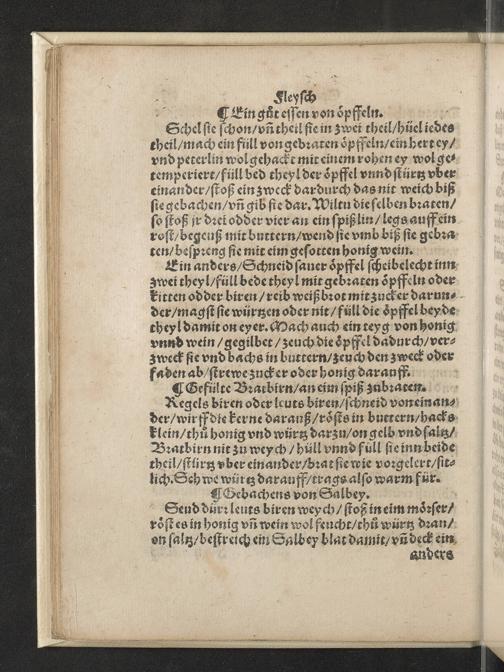 Fleysch
¶ Ein gůt essen von öpffeln.
Schel sie schon/vñ theil sie in zwei theil/hüel iedes
theil/mach ein füll von gebraten öpffeln/ein hert ey/
vnd peterlin wol gehackt mit einem rohen ey wol ge-
temperiert/füll bed theyl der öpffel vnnd stürtz vber
einander/stoß ein zweck dardurch das nit weich biß
sie gebachen/vñ gib sie dar. Wiltu die selben braten/
so stoß jr drei odder vier an ein spißlin/legs auff ein
rost/begeuß mit buttern/wend sie vmb biß sie gebra
ten/bespreng sie mit eim gesotten honig wein.
Ein anders/Schneid sauer öpffel scheibelecht inn
zwei theyl/füll bede theyl mit gebraten öpffeln oder
kitten odder biren/reib weißbrot mit zucker darun-
der/magst sie würtzen oder nit/füll die öpffel beyde
theyl damit on eyer. Mach auch ein teyg von honig
vnnd wein/gegilbet/zeuch die öpffel dadurch/ver-
zweck sie vnd bachs in buttern/zeuch den zweck oder
faden ab/strewe zucker oder honig darauff.
¶ Gefülte Bratbirn/an eim spiß zubraten.
Regels biren oder leuts biren/schneid von einan-
der/wirff die kerne darauß/rösts in buttern/hacks
klein/thů honig vnd würtz darzu/on gelb vnd saltz/
Bratbirn nit zu weych/hüll vnnd füll sie inn beide
theil/stürtz vber einander/brat sie wie vorgelert/sit-
lich. Schwe würtz darauff/trags also warm für.
¶ Gebachens von Salbey.
Seud dürr leuts biren weych/stoß in eim mörser/
röst es in honig vñ wein wol feucht/thů würtz dran/
on saltz/bestreich ein Salbey blat damit/vñ deck ein
anders